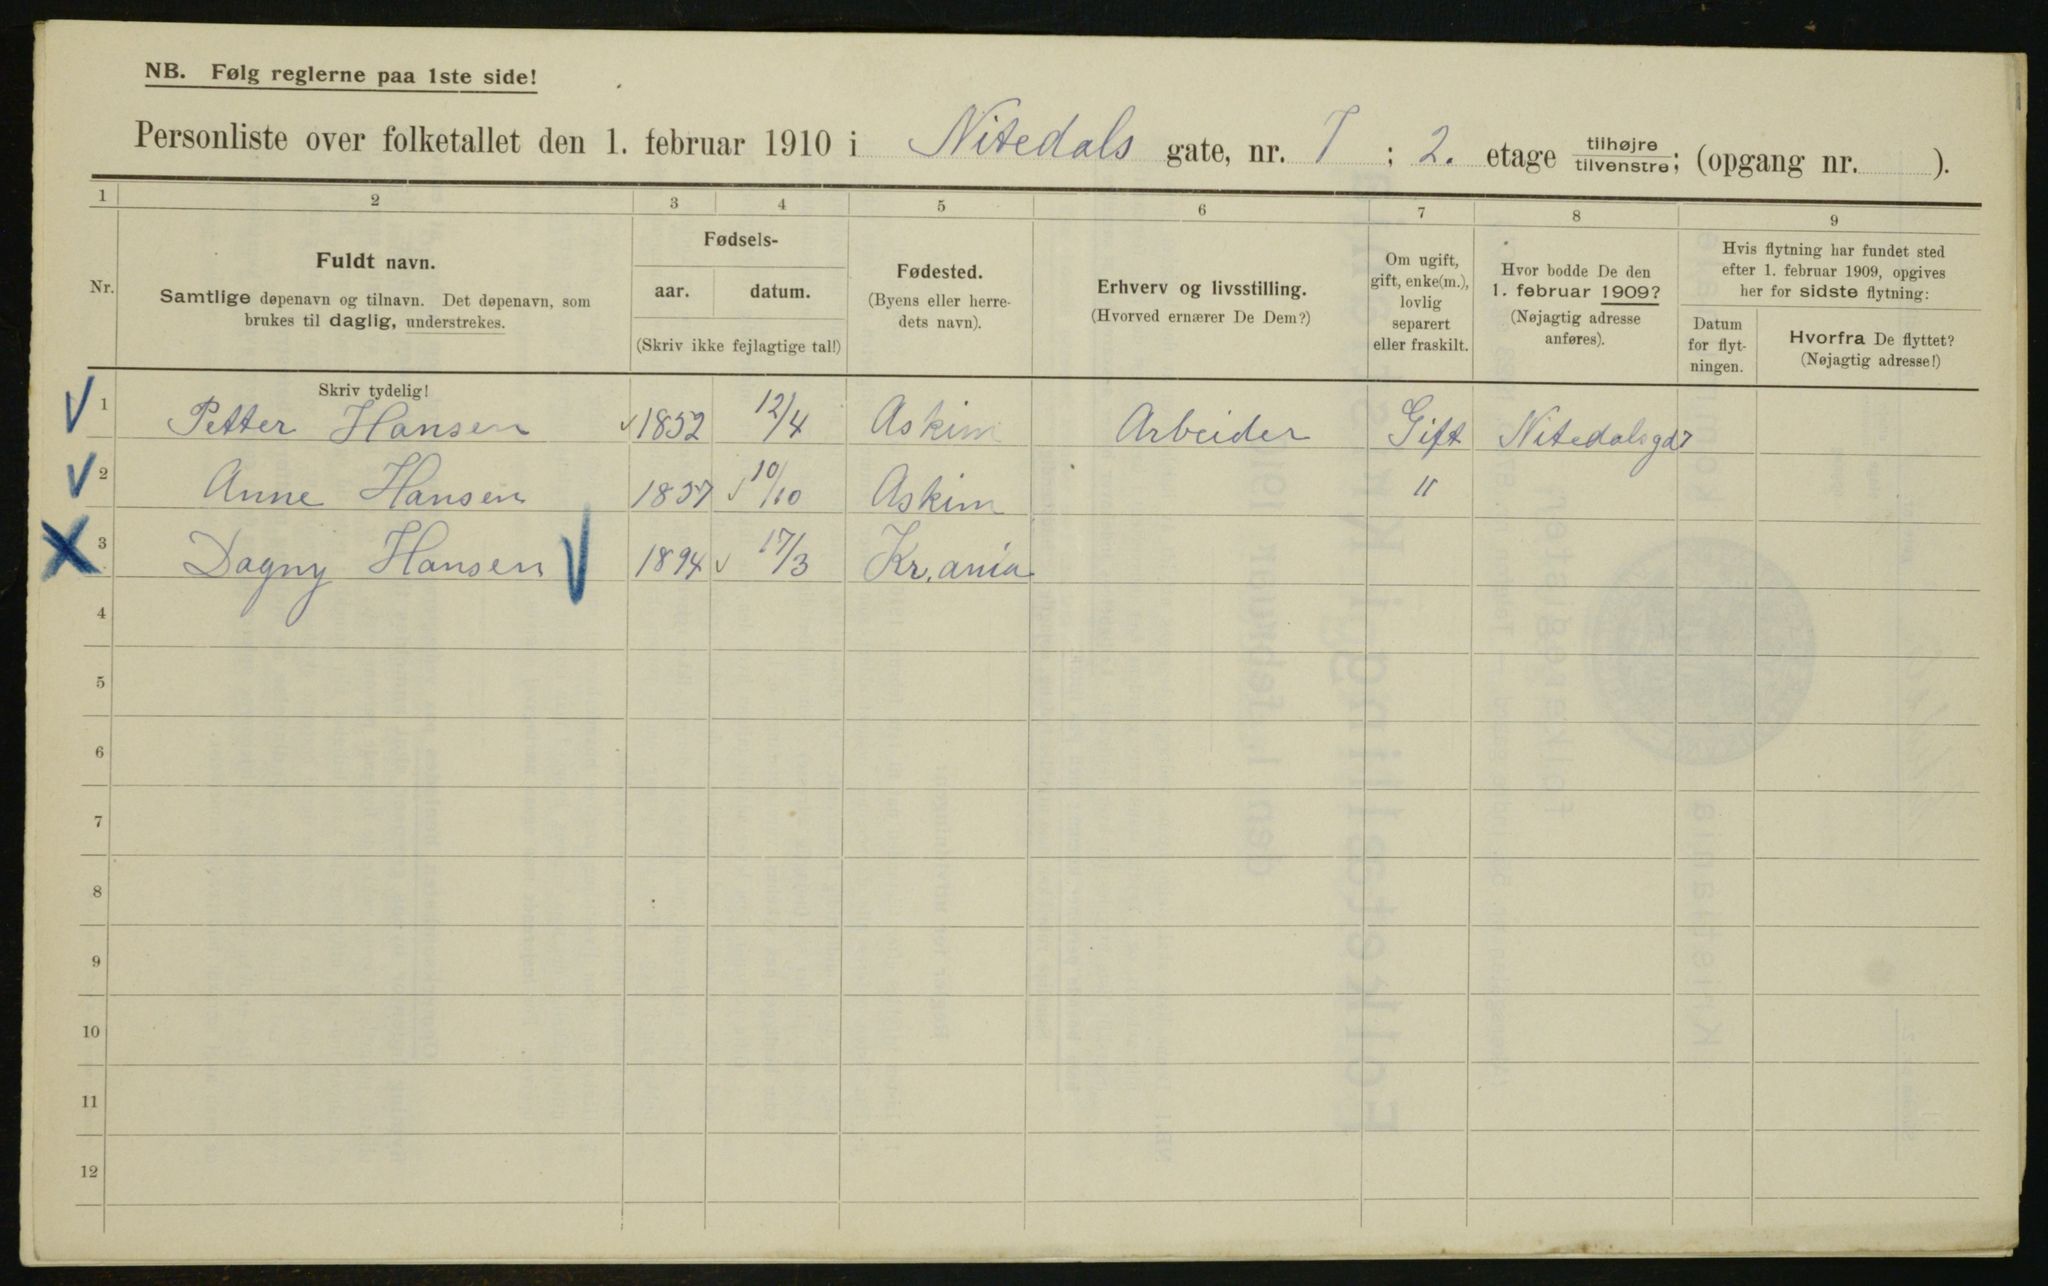 NB. Følg reglerne paa 1ste side!
Personliste over folketallet den 1. februar 1910 i Nitedals gate, nr. 7 ; 2. etage tilhøjre tilvenstre; (opgang nr. ).
1 2 3 4 5 6 7 8 9
Nr.
Fuldt navn.
Samtlige døpenavn og tilnavn. Det døpenavn, som
brukes til daglig, understrekes.
Fødsels-
aar. datum.
(Skriv ikke fejlagtige tal!)
Fødested.
(Byens eller herre-
dets navn).
Erhverv og livsstilling.
(Hvorved ernærer De Dem?)
Om ugift,
gift, enke(m.),
lovlig
separert
eller fraskilt.
Hvor bodde De den
1. februar 1909?
(Nøjagtig adresse
anføres).
Hvis flytning har fundet sted
efter 1. februar 1909, opgives
her for sidste flytning:
Datum
for flyt-
ningen.
Hvorfra De flyttet?
(Nøjagtig adresse!)
Skriv tydelig!
1 Petter Hansen 1852 12/4 Askim Arbeider Gift Nitedalsgd 7
2 Anne Hansen 1857 10/10 Askim "
3 Dagny Hansen 1894 17/3 Kr.ania
4
5
6
7
8
9
10
11
12